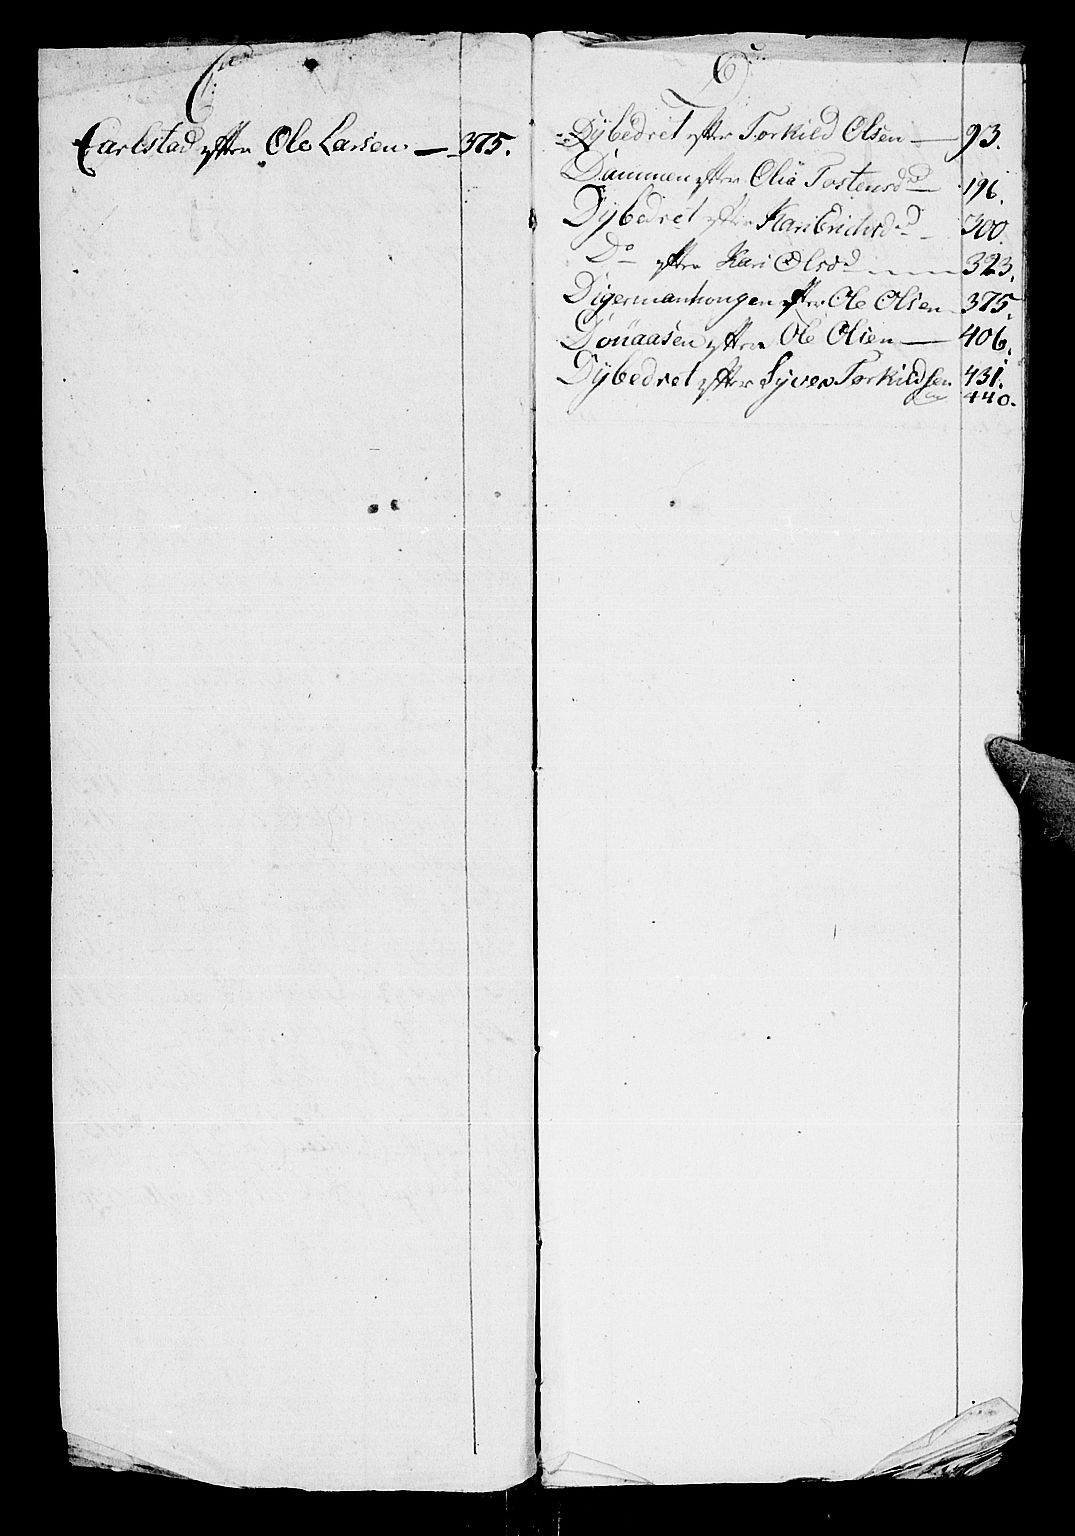 C
Carlstad efter Ole Larsen — 375.
D
Dybedret efter Torkild Olsen — 93.
Dammen efter Olia Tostensd — 196.
Dybedret efter Kari Erichsd — 300.
Do efter Kari Olsd — 323.
Digermanhongen efter Ole Olsen — 375.
Donaasen efter Ole Olsen — 406.
Dybedret efter Syver Torkildsen 431.
440.